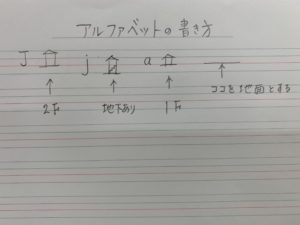 アルファベットの書き方
J j a
ココを地面とする
2F 地下あり 1F